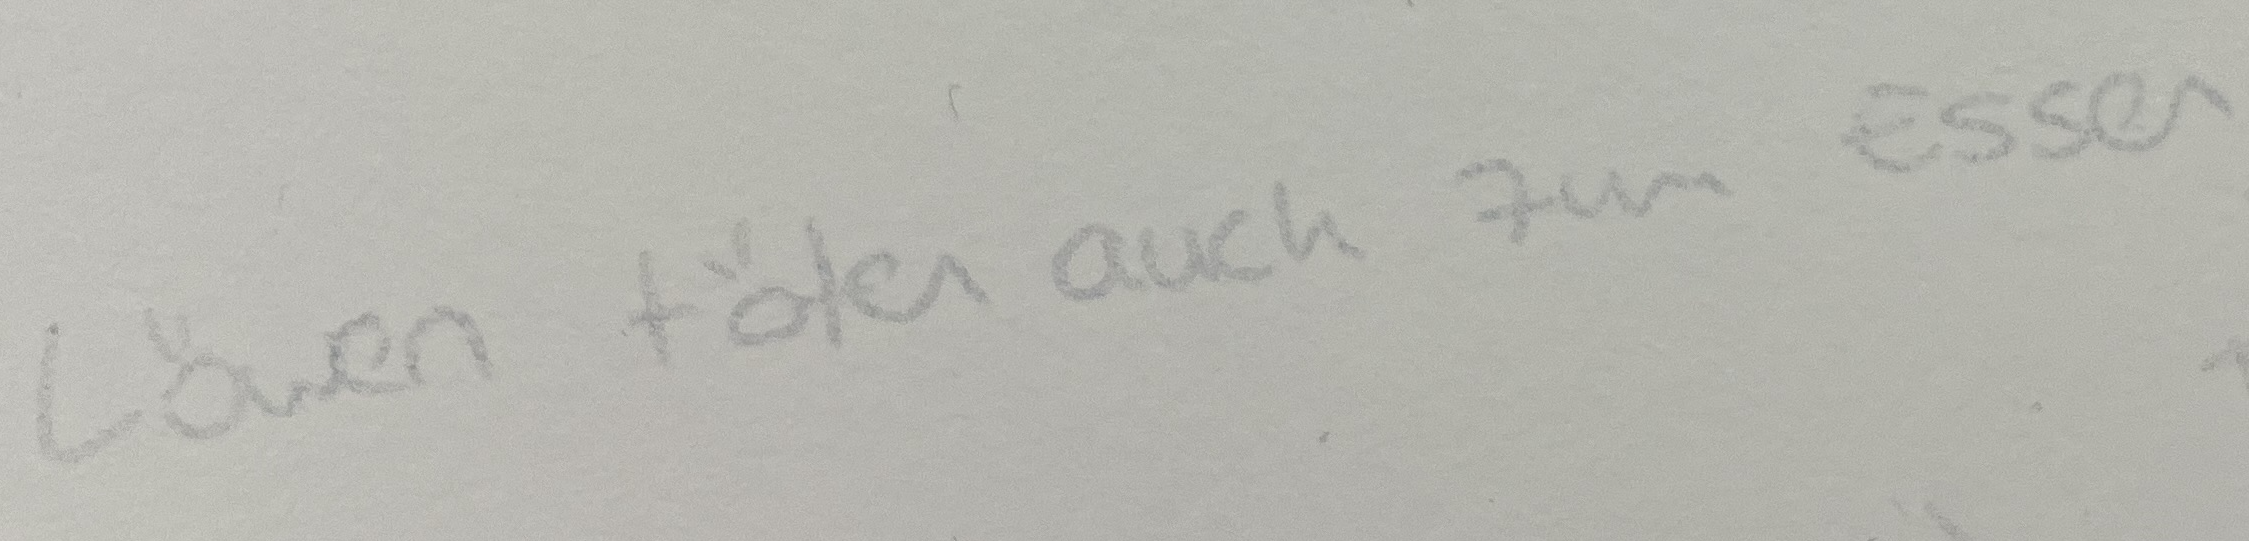 Löwen töten auch zum Essen